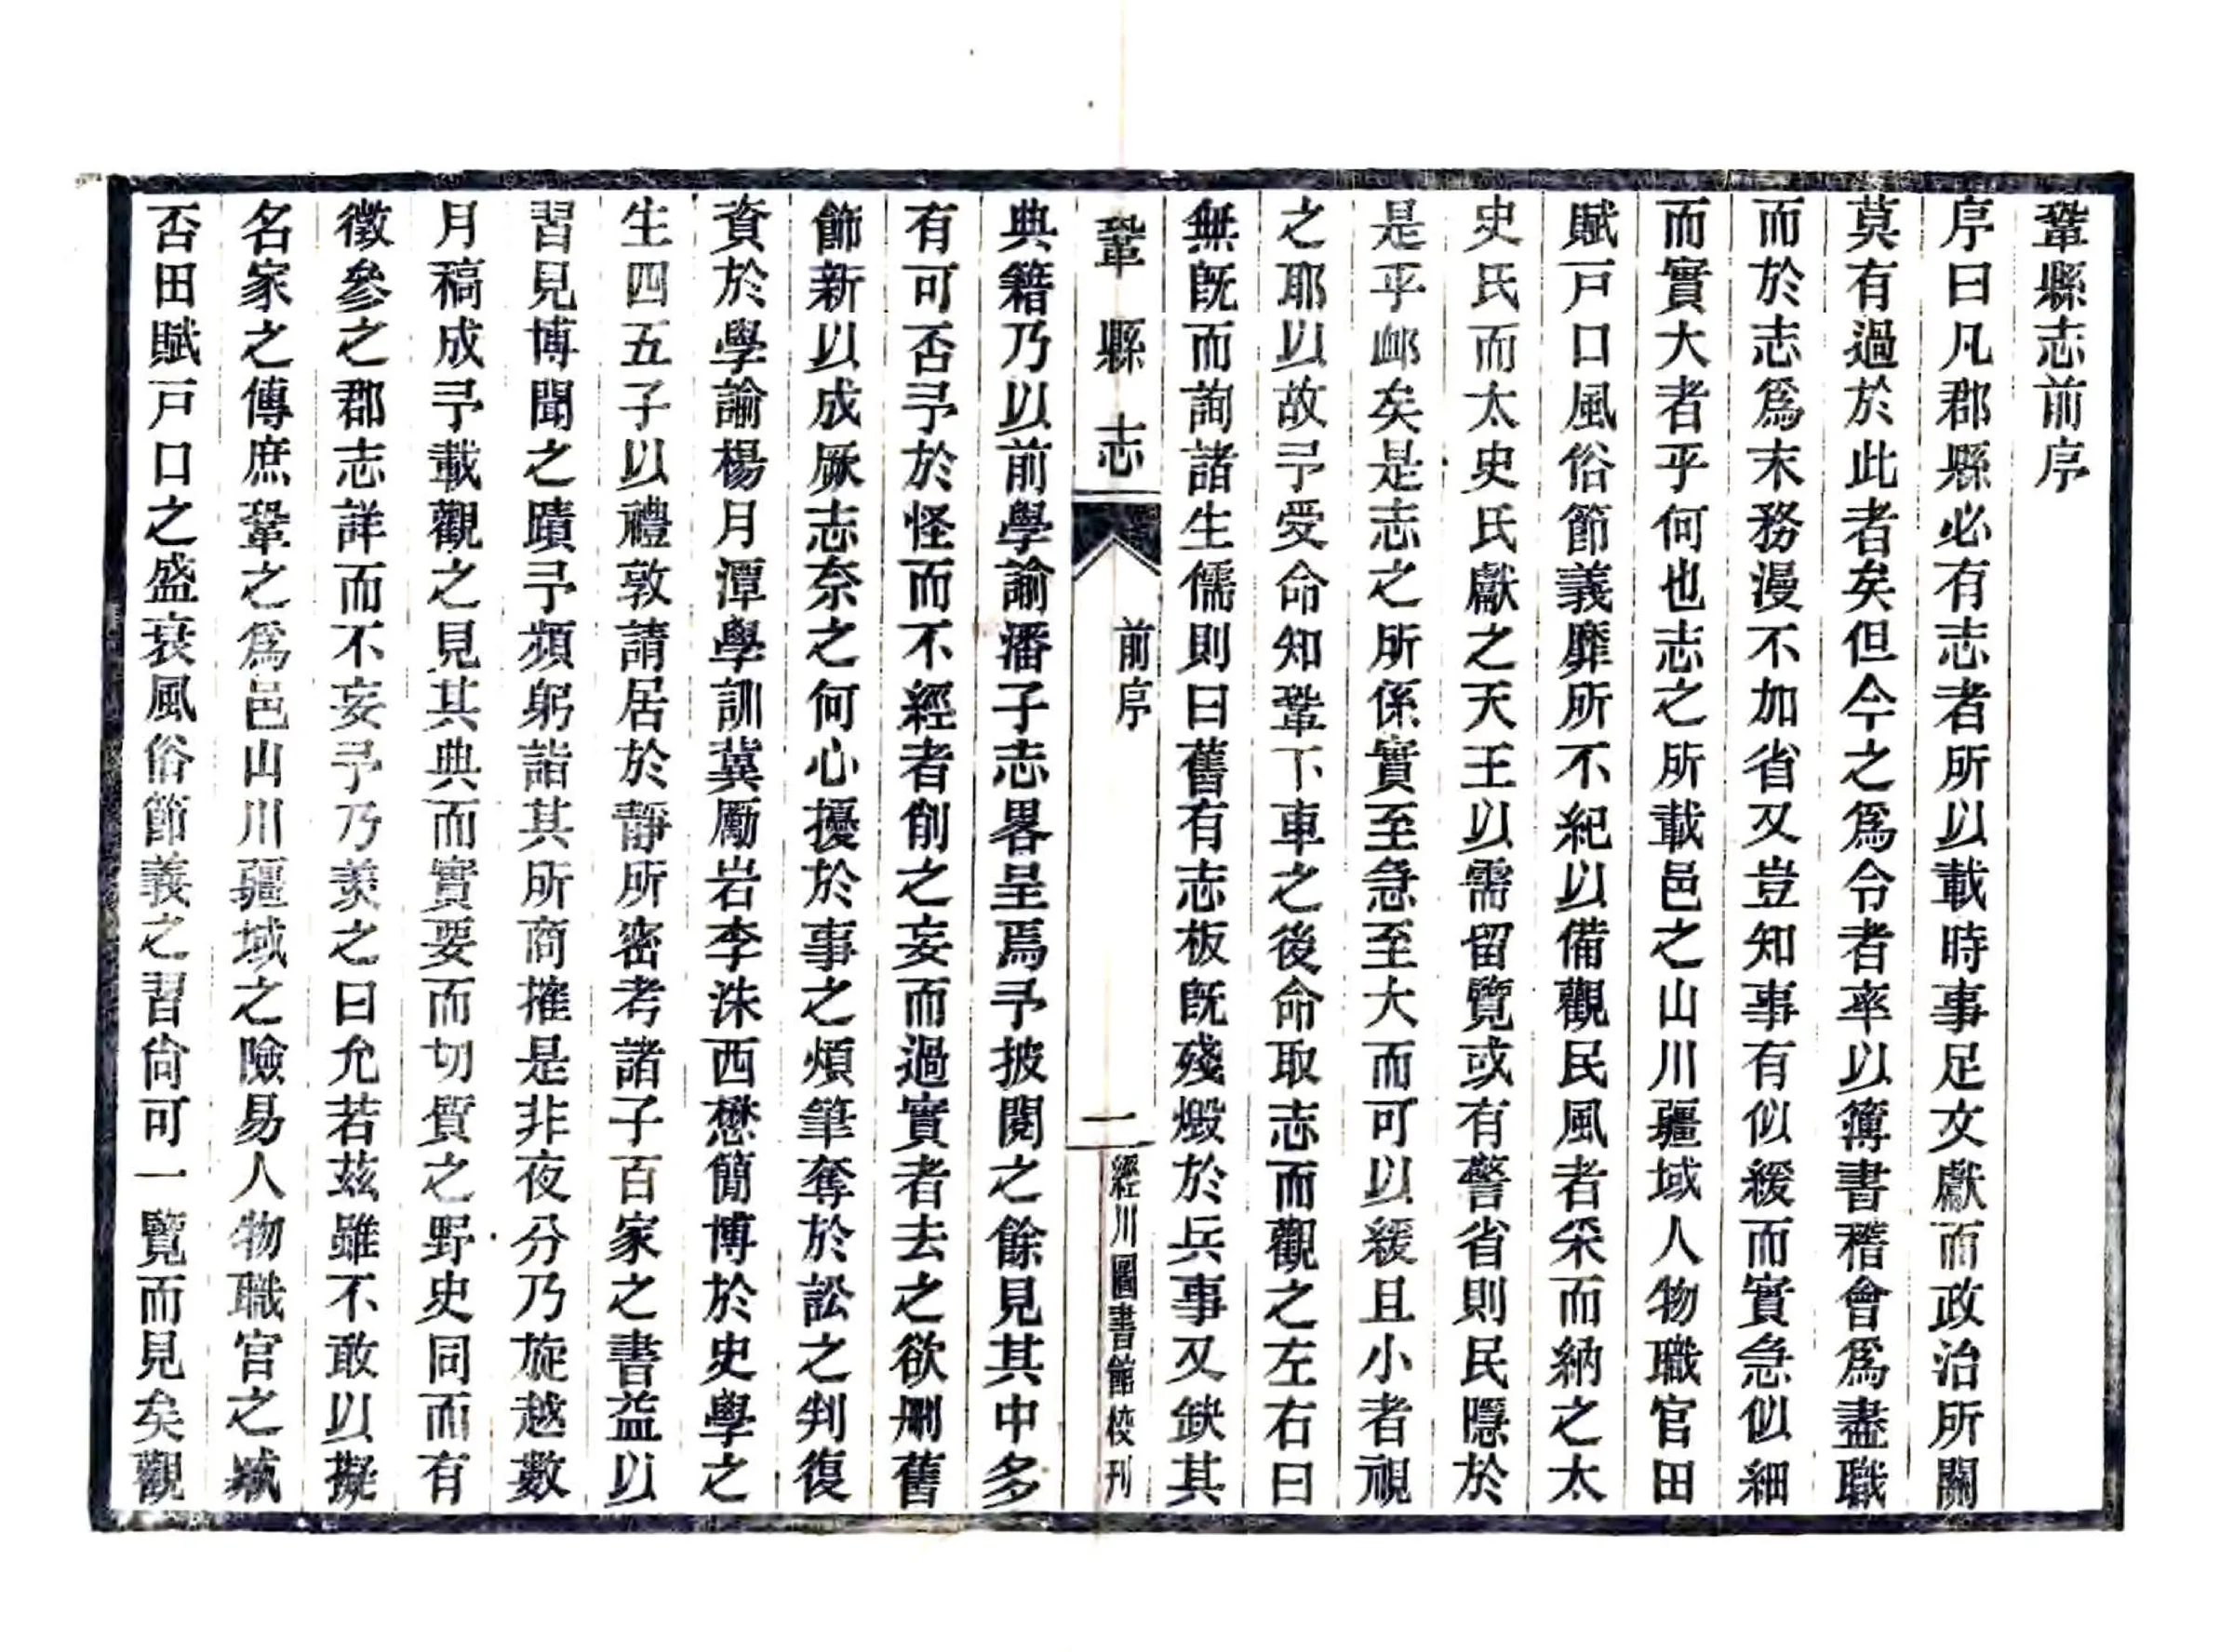 鞏縣志前序
序曰凡郡縣必有志者所以載時事足文獻而政治所關
莫有過於此者矣但今之爲令者率以簿書稽會爲盡職
而於志爲末務漫不加省又豈知事有似緩而實急似細
而實大者乎何也志之所載邑之山川疆域人物職官田
賦戸口風俗節義靡所不紀以備觀民風者采而納之太
史氏而太史氏獻之天王以需留覽或有警省則民隱於
是乎邺矣是志之所係實至急至大而可以緩且小者視
之耶以故予爱命知鞏下車之後命取志而觀之左右曰
無旣而詢諸生儒則曰舊有志板旣殘燬於兵事又缺其
鞏縣志 前序 一 經川圖書館校刊
典籍乃以前學諭潘子志畧呈焉予披閱之餘見其中多
有可否予於怪而不經者削之妄而過實者去之欲刪舊
飾新以成厥志奈之何心擾於事之煩筆奪於訟之判復
資於學諭楊月潭學訓冀勵岩李洙西懋簡博於史學之
生四五子以禮敦請居於靜所密考諸子百家之書益以
習見博聞之蹟予頻躬詣其所商搉是非夜分乃旋越數
月稿成予載觀之見其典而實要而切質之野史同而有
徵參之郡志詳而不妄予乃羨之曰允若茲雖不敢以擬
名家之傳庶鞏之爲邑山川疆域之險易人物職官之臧
否田賦戸口之盛衰風俗節義之習尙可一覽而見矣觀